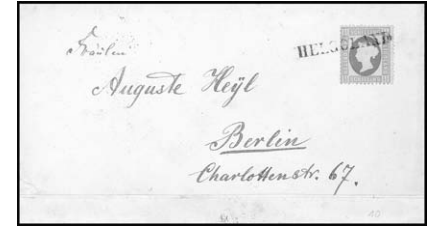 HELGOLAND
Fräulein
Auguste Heyl
Berlin
Charlottenstr. 67.